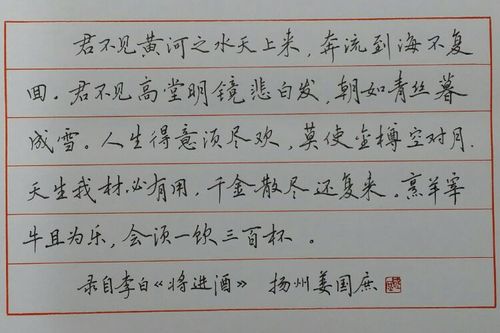 君不见黄河之水天上来，奔流到海不复
回。君不见高堂明镜悲白发，朝如青丝暮
成雪。人生得意须尽欢，莫使金樽空对月.
天生我材必有用，千金散尽还复来。烹羊宰
牛且为乐，会须一饮三百杯。
录自李白《将进酒》 扬州姜国庶